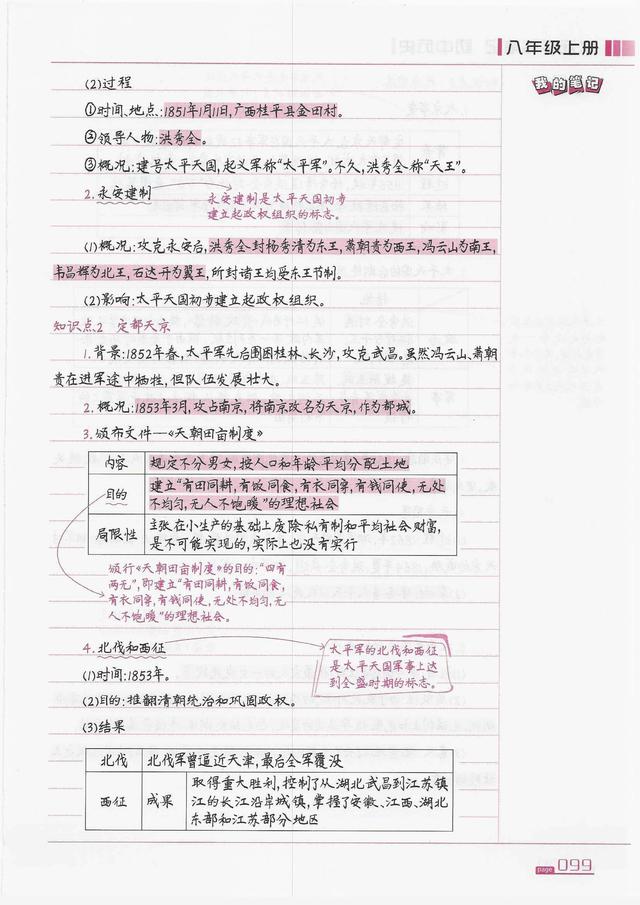 八年级上册
我的笔记
(2)过程
①时间、地点:1851年1月11日,广西桂平县金田村。
②领导人物:洪秀全。
③概况:建号太平天国,起义军称“太平军”。不久,洪秀全称“天王”。
2.永安建制
永安建制是太平天国初步
建立起政权组织的标志。
(1)概况:攻克永安后,洪秀全封杨秀清为东王,萧朝贵为西王,冯云山为南王,
韦昌辉为北王,石达开为翼王,所封诸王均受东王节制。
(2)影响:太平天国初步建立起政权组织。
知识点2 定都天京
1.背景:1852年春,太平军先后围困桂林、长沙,攻克武昌。虽然冯云山、萧朝
贵在进军途中牺牲,但队伍发展壮大。
2.概况:1853年3月,攻占南京,将南京改名为天京,作为都城。
3.颁布文件—《天朝田亩制度》
内容 规定不分男女,按人口和年龄平均分配土地
目的 建立“有田同耕,有饭同食,有衣同穿,有钱同使,无处
不均匀,无人不饱暖”的理想社会
局限性 主张在小生产的基础上废除私有制和平均社会财富,
是不可能实现的,实际上也没有实行
颁行《天朝田亩制度》的目的:“四有
两无”,即建立“有田同耕,有饭同食,
有衣同穿,有钱同使,无处不均匀,无
人不饱暖”的理想社会。
4.北伐和西征
太平军的北伐和西征
是太平天国军事上达
到全盛时期的标志。
(1)时间:1853年。
(2)目的:推翻清朝统治和巩固政权。
(3)结果
北伐 北伐军曾逼近天津,最后全军覆没
西征 成果 取得重大胜利,控制了从湖北武昌到江苏镇
江的长江沿岸城镇,掌握了安徽、江西、湖北
东部和江苏部分地区
page 099